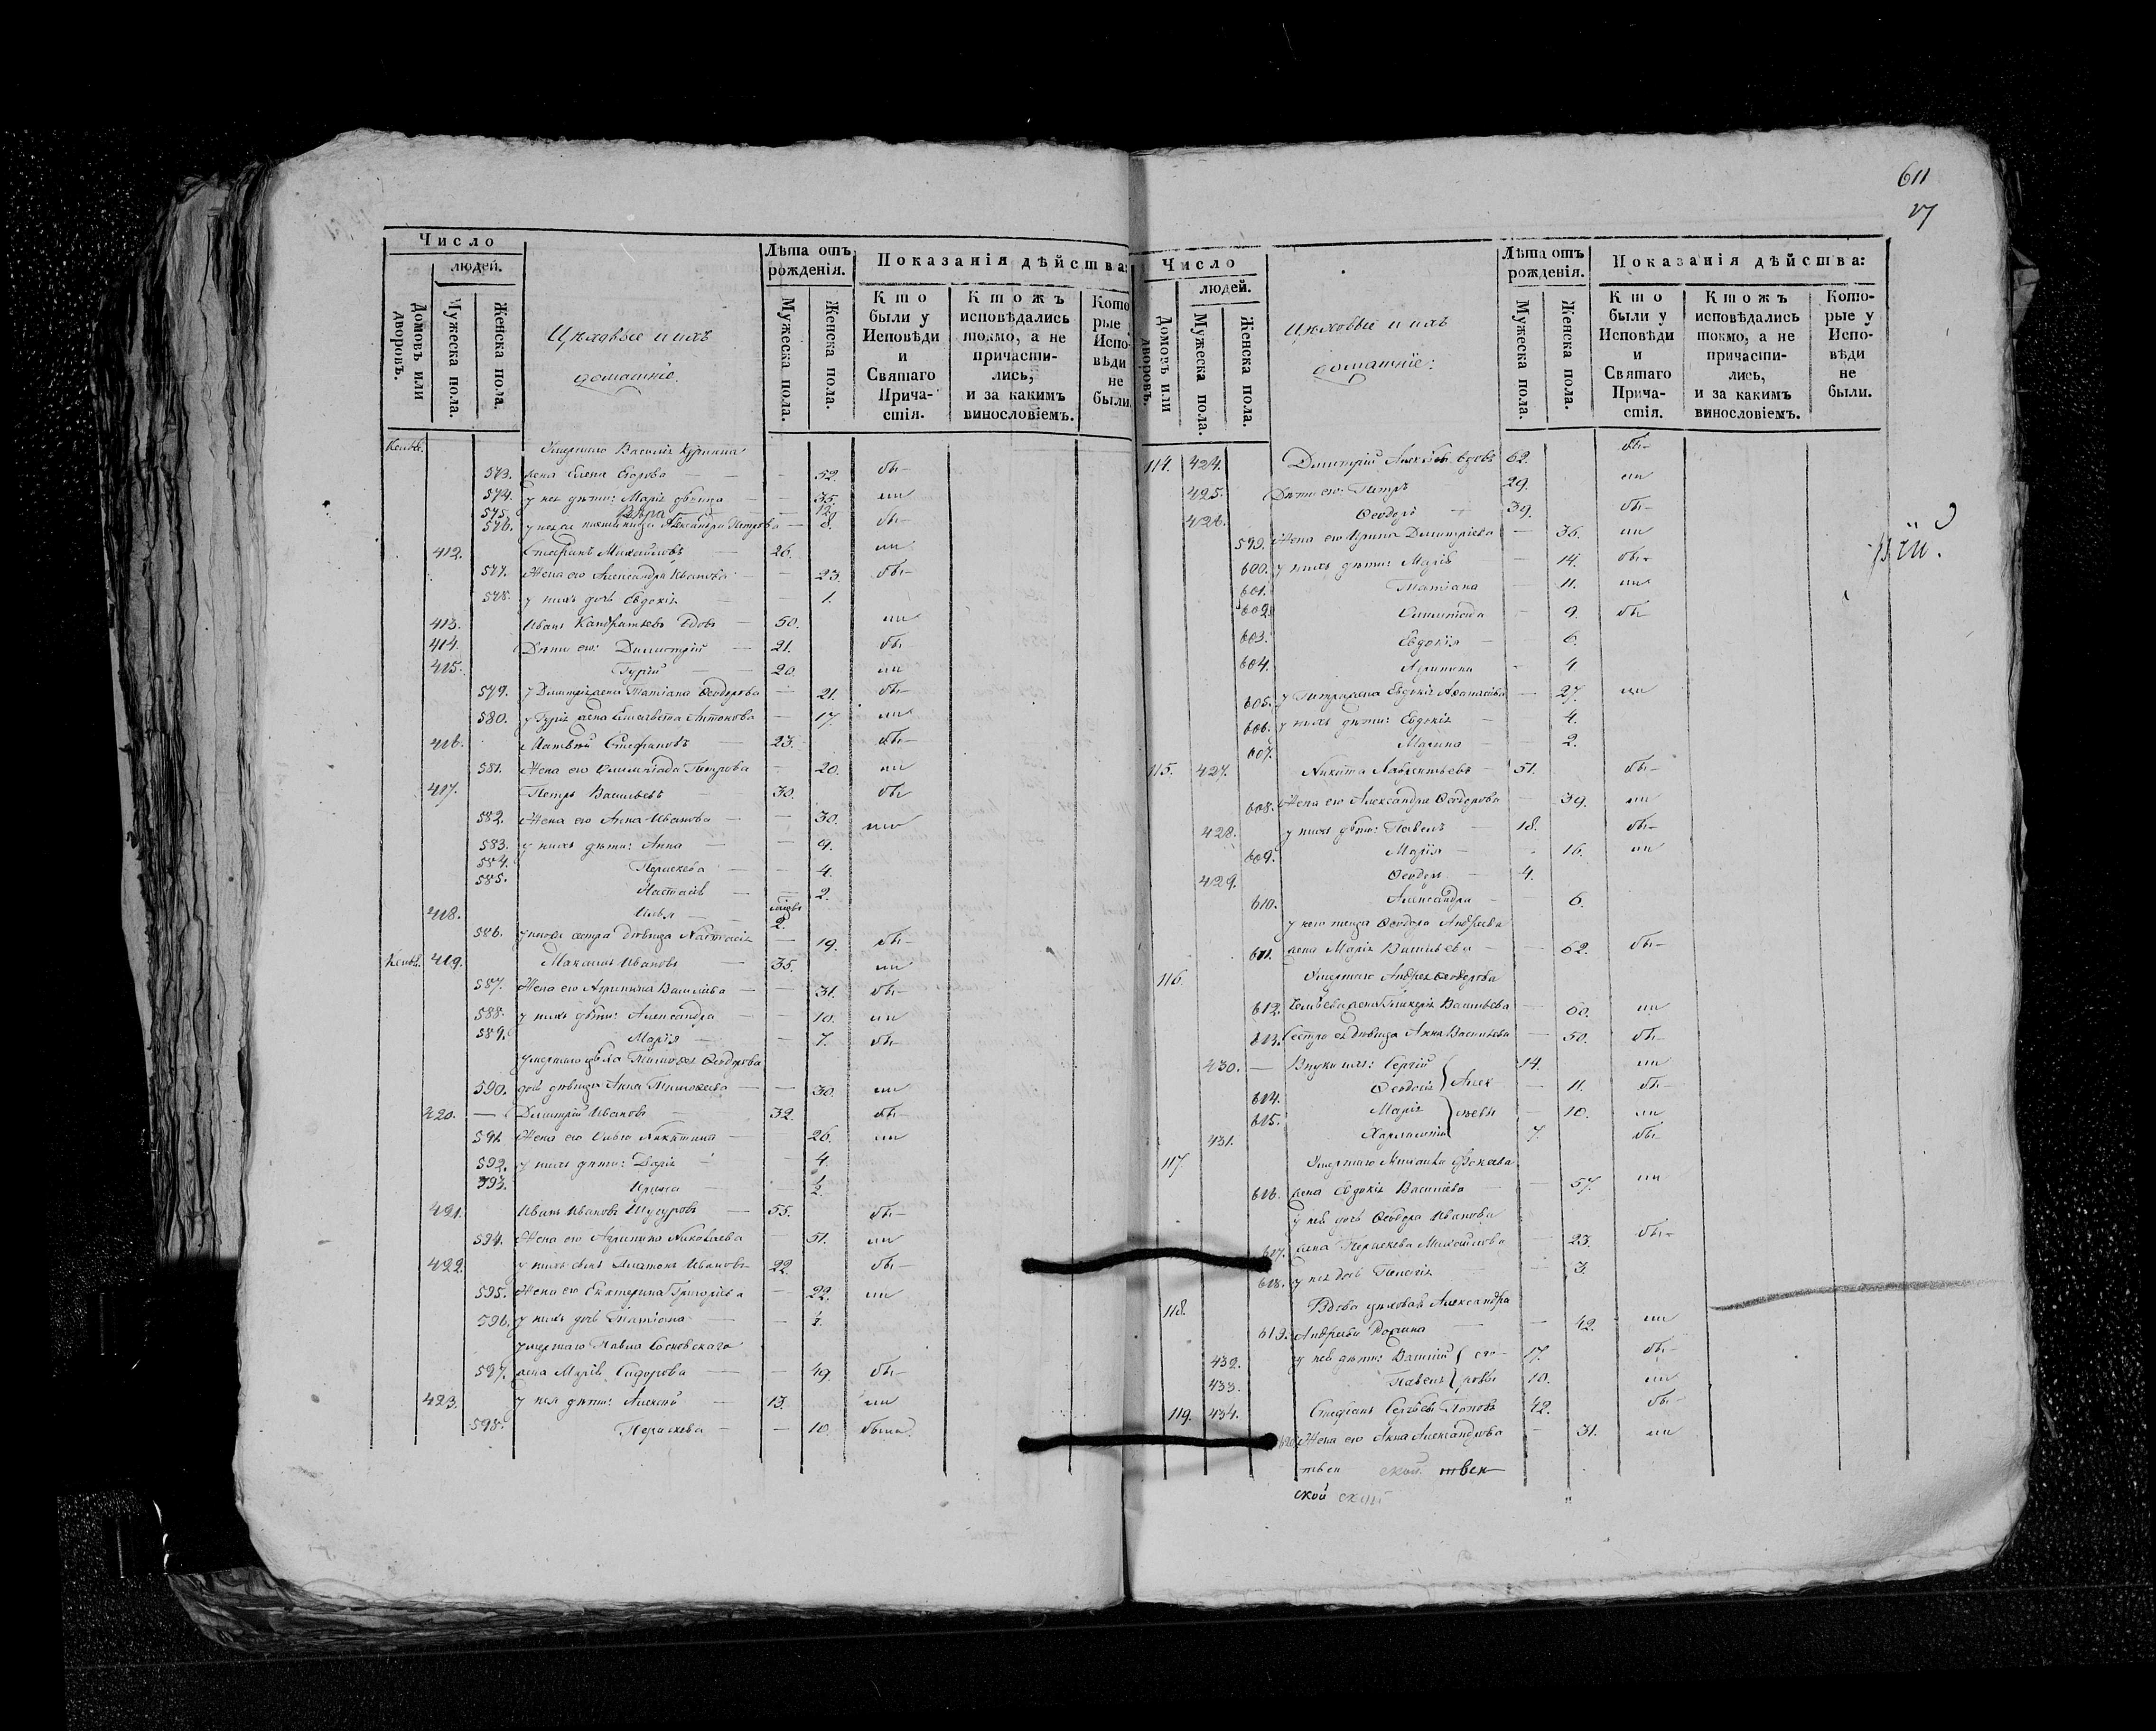 611
17
Число
людей.
Домовъ или дворовъ.
Мужеска пола.
Женска пола.
Цѣховые и ихъ
домашніе.
Лѣта отъ рожденія.
Мужеска пола.
Женска пола.
Показанія дѣйства:
Кто были у Исповѣди и Святаго Причастія.
Ктожъ исповѣдались токмо, а не причастились, и за какимъ винословіемъ.
Которые у Исповѣди не были.
Умершаго Василія
573. жена Елена Егорова — 52. бы-
574. у нея дѣти: Марія дѣвица — 35. ли
575. Вѣра — 12
576. Александра Петрова — 8. бы-
412. Стефанъ Михайловъ — 26. ли
577. Жена его Александра Иванова — 23. бы-
578. у нихъ дочь Евдокія — 1.
413. Иванъ Кондратьевъ вдовъ — 50. ли
414. Дѣти его: Димитрій — 21. бы-
415. Гурій — 20. ли
579. у Димитрія жена Татіана Ѳеодорова — 21. бы-
580. у Гурія жена Елисавета Антонова — 17. ли
416. Матвѣй Стефановъ — 23. бы-
581. Жена его Олимпіада Петрова — 20. ли
417. Петръ Васильевъ — 30. бы
582. Жена его Анна Иванова — 30. ли
583. у нихъ дѣти: Анна — 9.
584. Параскева — 4.
585. Настасія — 2.
418. Илья — 2.
586. сестра дѣвица — 19. бы-
419. Максимъ Ивановъ — 35. ли
587. Жена его Агрипина Васильева — 31. бы-
588. у нихъ дѣти: Александра — 10. ли
589. Марія — 7. бы-
умершаго Тимоѳея Ѳеодорова
590. дочь дѣвица Анна Тимоѳеева — 30. ли
420. — Димитрій Ивановъ — 32. бы-
591. Жена его Никитина — 26. ли
592. у нихъ дѣти: Дарія — 4.
593. Ирина — 1/2
421. Иванъ Ивановъ — 55. бы-
594. Жена его Агрипина Николаева — 51. ли
422. у нихъ сынъ Платонъ Ивановъ 22. бы-
595. Жена его Екатерина Григорьева — 22. ли
596. у нихъ дочь Татіана —
умершаго Павла Сосновскаго
597. жена Марія Сидорова — 49. бы-
423. у нея дѣти: Алексѣй — 13. ли
598. Параскева — 10. были
Число
людей.
Домовъ или дворовъ.
Мужеска пола.
Женска пола.
Цѣховые и ихъ
домашніе:
Лѣта отъ рожденія.
Мужеска пола.
Женска пола.
Показанія дѣйства:
Кто были у Исповѣди и Святаго Причастія.
Ктожъ исповѣдались токмо, а не причастились, и за какимъ винословіемъ.
Которые у Исповѣди не были.
114. 424. Димитрій вдовъ 62. бы-
425. Дѣти его: Петръ 29. ли
426. Ѳеодоръ 39. бы-
599. Жена его Ирина Димитріева — 36. ли
600. у нихъ дѣти: Марія — 14. бы-
601. Татіана — 11. ли
602. Олимпіада — 9. бы
603. Евдокія — 6.
604. Агрипина — 4
605. у Петра жена Евдокія Аѳанасіева — 27. ли
606. у нихъ дѣти: Евдокія — 4.
607. Марина — 2.
115. 427. Никита Лаврентьевъ — 51. бы-
608. Жена его Александра Ѳеодорова — 39. ли
428. у нихъ дѣти: Павелъ — 18. бы-
609. Марія — 16. ли
429. Ѳеодоръ — 4.
610. Александра — 6.
у него теща Ѳеодора Андреева
611. жена Марія Васильева — 62. бы-
116. Умершаго Андрея Ѳеодорова
612. жена Гликерія Васильева — 60. ли
613. Сестра ея дѣвица Анна Васильева — 50. бы-
430. — Внуки ихъ: Сергій 14. ли
614. Ѳеодосія Алек — 11. бы-
615. Марія сѣевы — 10. ли
431. Харлампій 7. бы-
117. Умершаго
616. жена Евдокія Василіева — 57. ли
у нея Ѳеодора Иванова
617. жена Параскева Михайлова — 23. бы-
618. у нея дочь Пелагія 3.
118. Вдова цѣховая Александра
619. Андреева — 42. ли
432. у нея дѣти: Василій 17. бы-
433. Павелъ 10. ли
119. 434. Стефанъ Сергѣевъ Поповъ 42. бы-
620. Жена его Анна Александрова — 31. ли
твен ской твен
ской ской